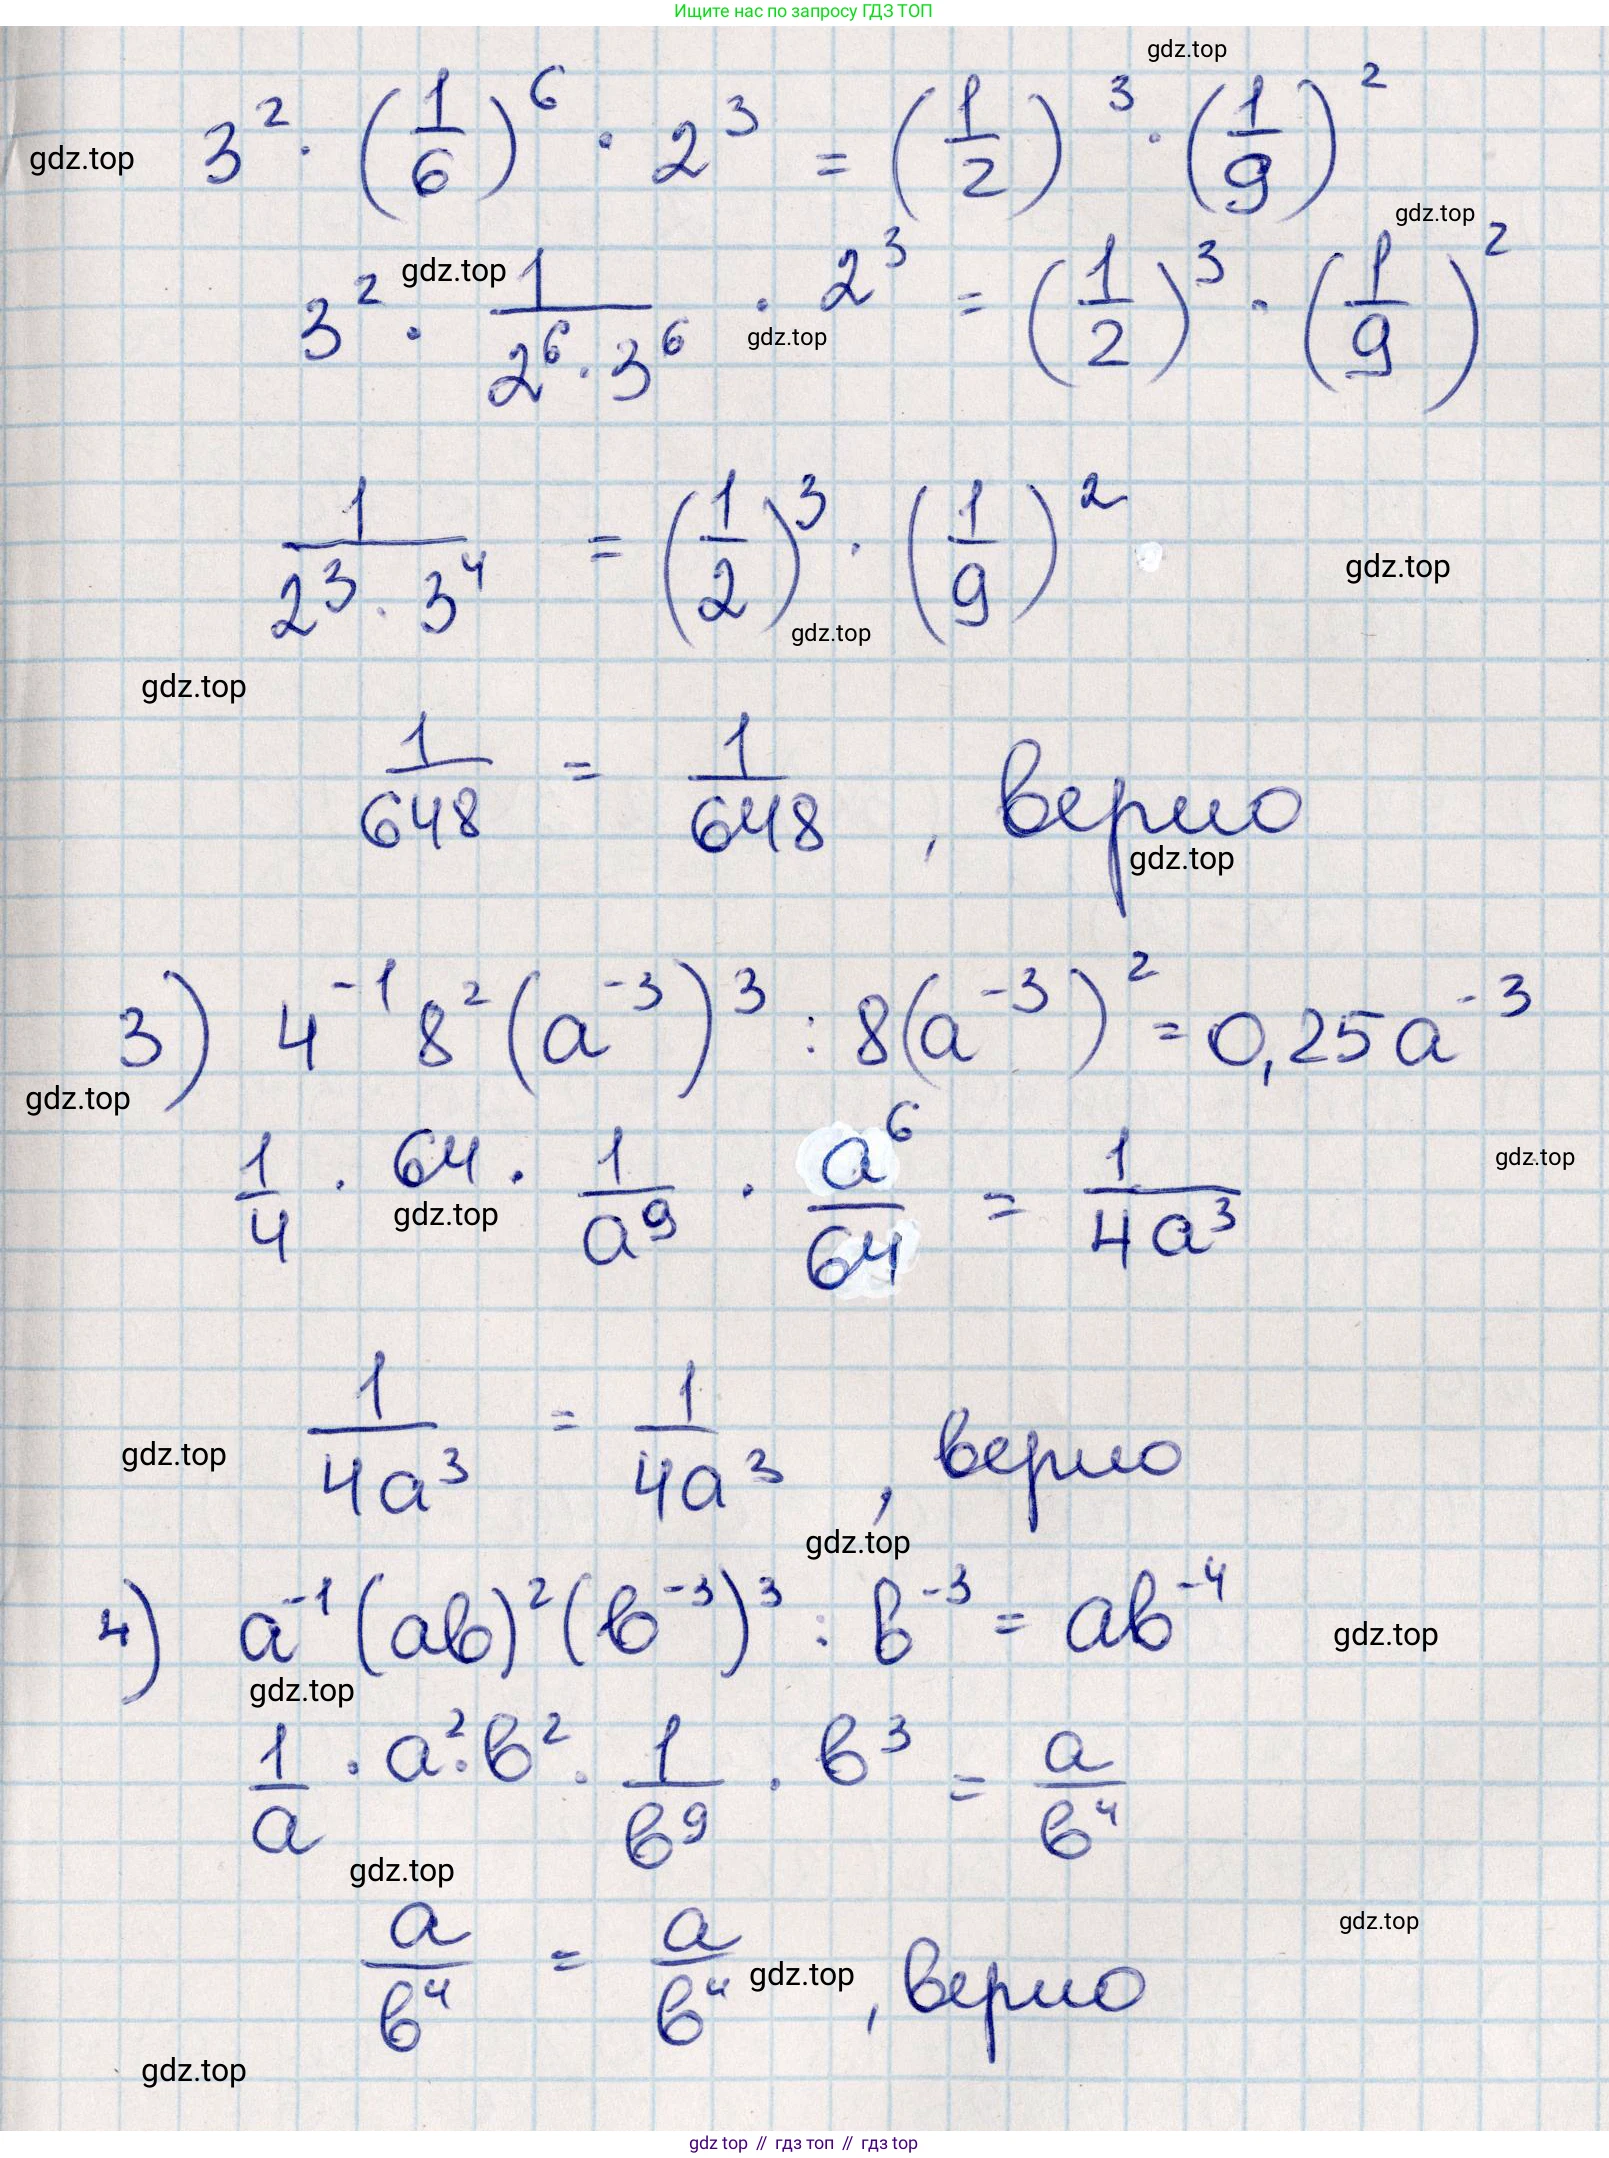 Ищите нас по запросу ГДЗ ТОП
gdz.top
3² · (1/6)⁶ · 2³ = (1/2)³ · (1/9)²
gdz.top
gdz.top
gdz.top
3² · 1/(2⁶ · 3⁶) · 2³ = (1/2)³ · (1/9)²
gdz.top
1/(2³ · 3⁴) = (1/2)³ · (1/9)²
gdz.top
gdz.top
gdz.top
1/648 = 1/648, верно
gdz.top
3) 4⁻¹ 8² (a⁻³)³ : 8(a⁻³)² = 0,25a⁻³
gdz.top
1/4 · 64 · 1/a⁹ · a⁶/64 = 1/(4a³)
gdz.top
gdz.top
1/(4a³) = 1/(4a³), верно
gdz.top
gdz.top
4) a⁻¹ (ab)² (b⁻³)³ : b⁻³ = ab⁻⁴
gdz.top
gdz.top
1/a · a² · b² · 1/b⁹ · b³ = a/b⁴
gdz.top
gdz.top
a/b⁴ = a/b⁴, верно
gdz.top
gdz.top
gdz top // гдз топ // гдз top